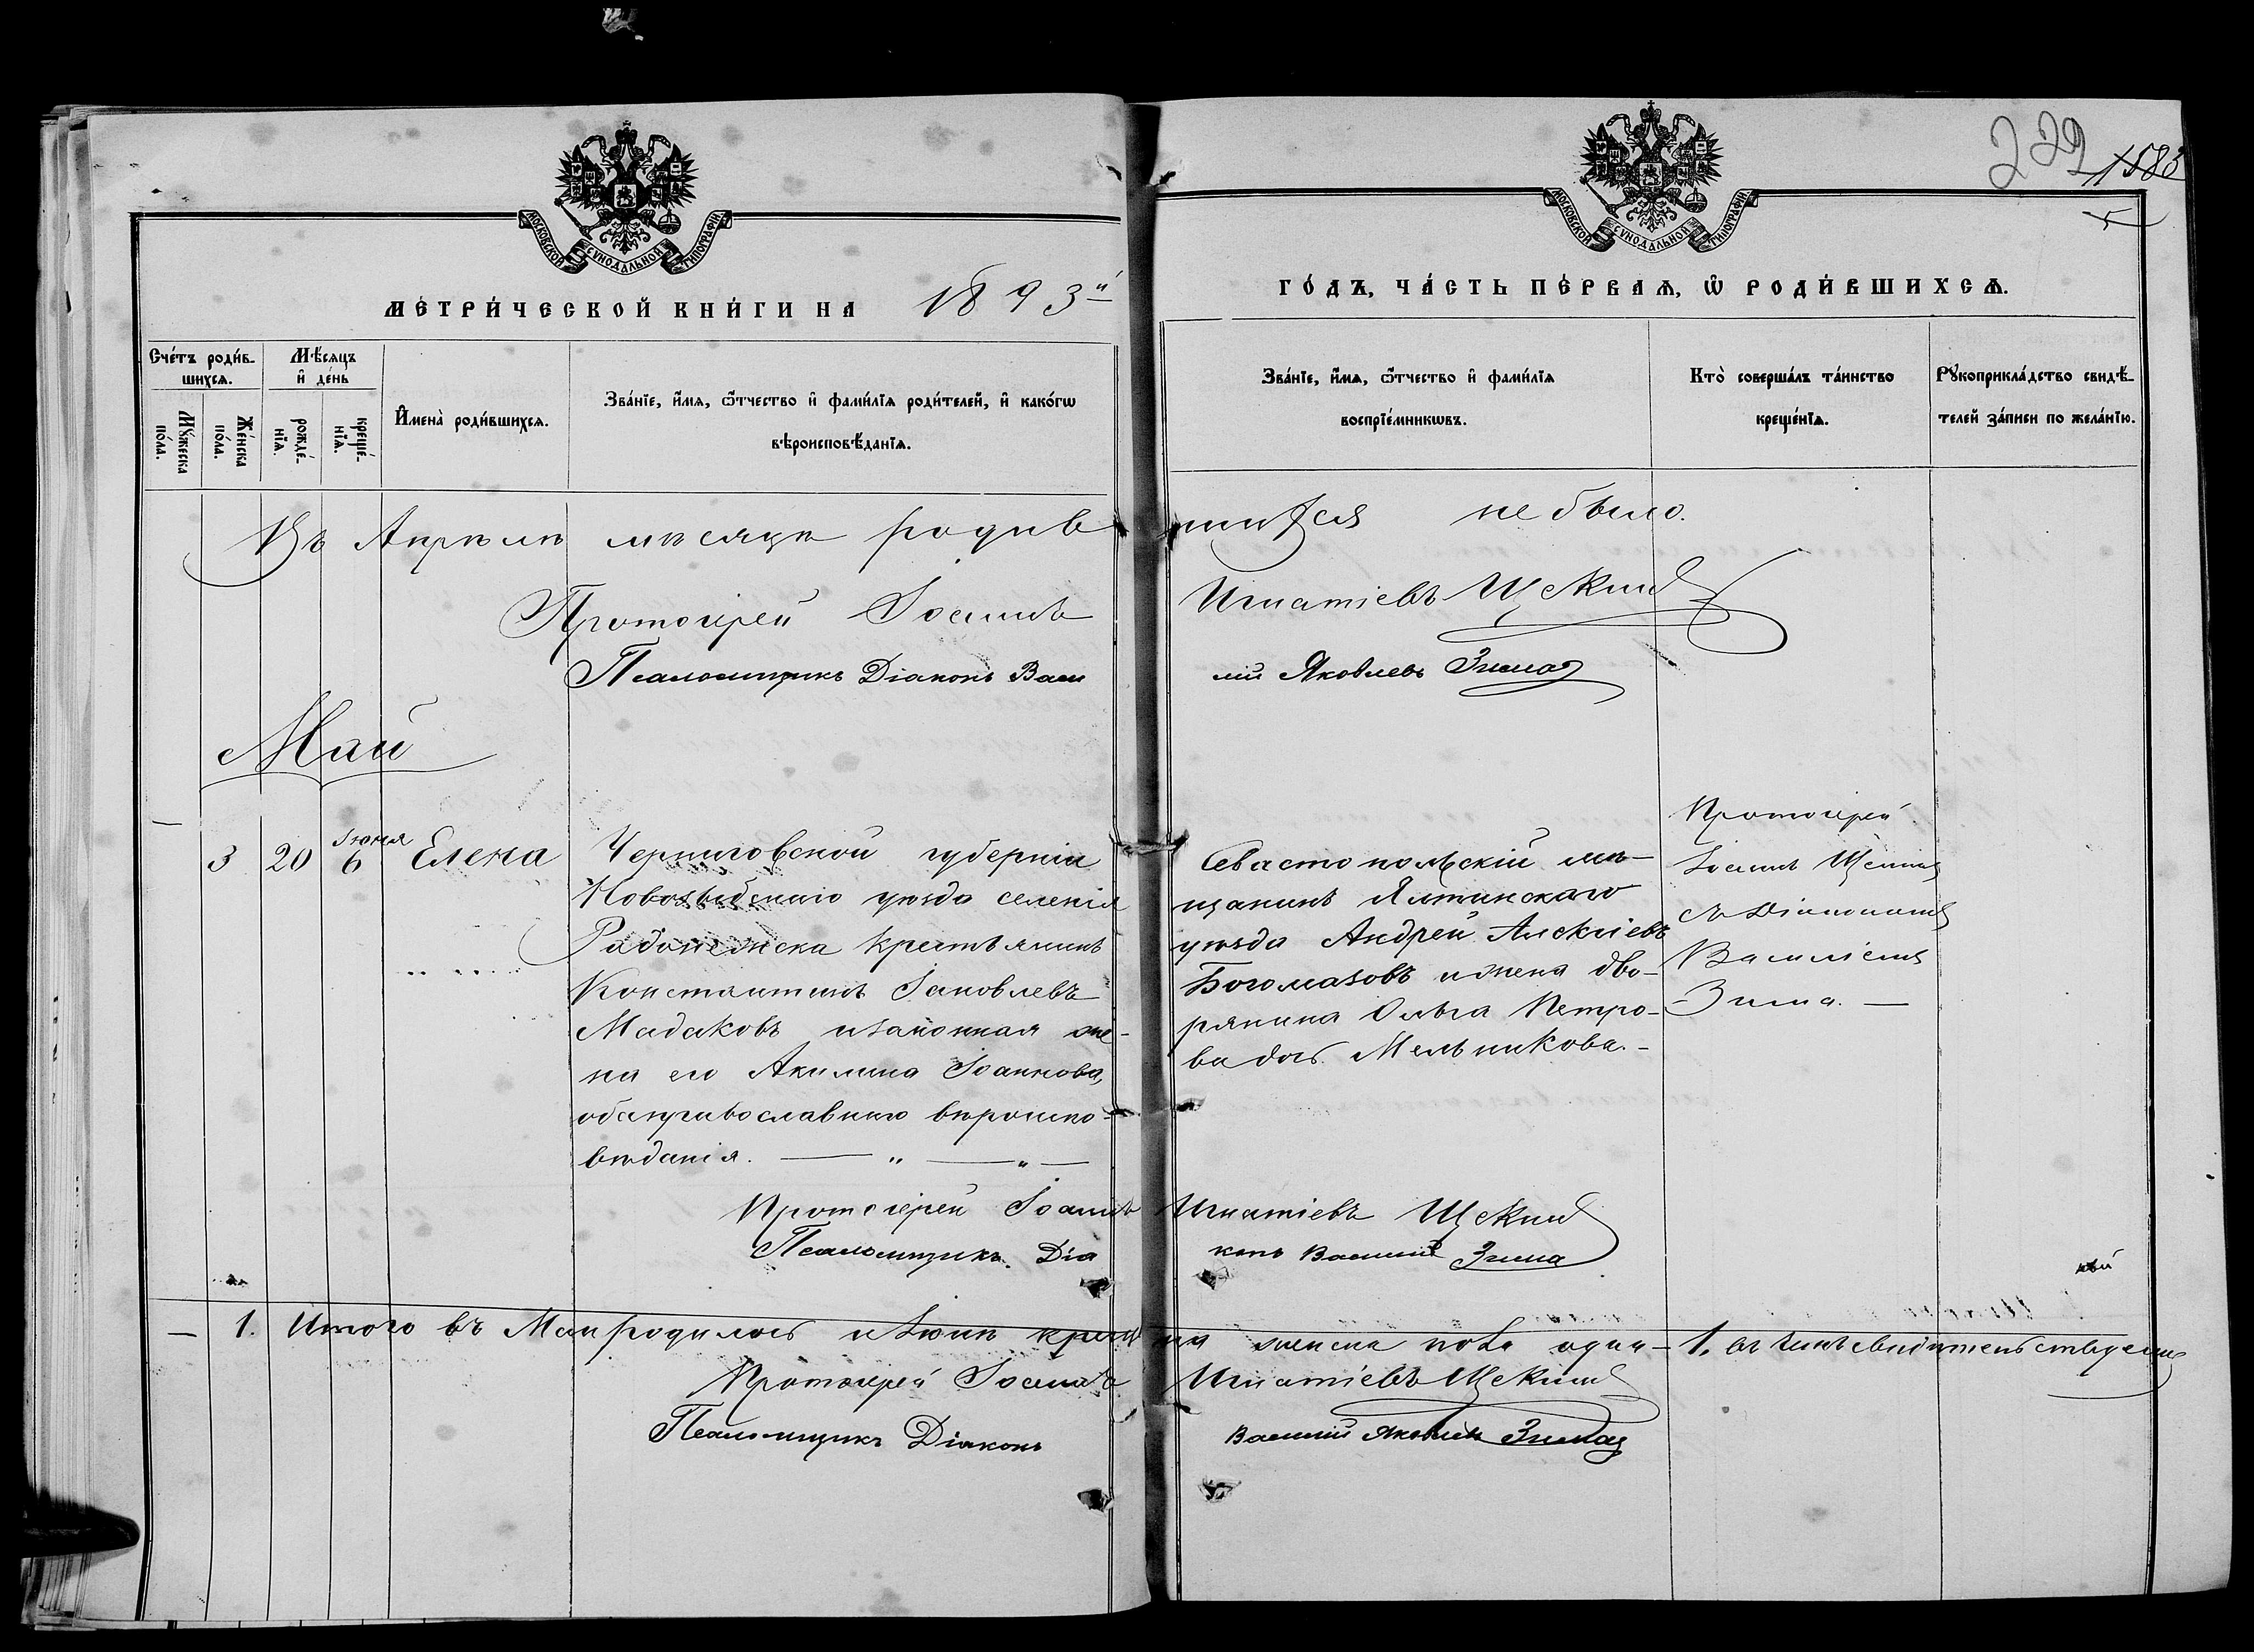 229 1583
МОСКОВСКОЙ СѴНОДАЛЬНОЙ ТИПОГРАФІИ
МОСКОВСКОЙ СѴНОДАЛЬНОЙ ТИПОГРАФІИ
МЕ́ТРИ́ЧЕСКОЙ КНИ́ГИ НА 1893й
ГО́ДЪ, ЧА́СТЬ ПЕ́РВАѦ, Ѡ҆ РОДИ́ВШИХСѦ.
Сче́тъ роди́в-
шихсѧ.
Мꙋ́жеска по́ла.
Же́нска по́ла.
Мѣ́сѧцъ
и҆ де́нь
рожде́-
нїѧ.
креще́-
нїѧ.
И҆мена̀ роди́вшихсѧ.
Зва́нїе, и҆́мѧ, ѻ҆́тчество и҆ фами́лїѧ роди́телей, и҆ како́гѡ
вѣроисповѣ́данїѧ.
Зва́нїе, и҆́мѧ, ѻ҆́тчество и҆ фами́лїѧ
воспрїе́мникѡвъ.
Кто̀ соверша́лъ та́инство
креще́нїѧ.
Рꙋкоприкла́дство свидѣ́-
телей за́писи по жела́нїю.
Въ Апрѣлѣ мѣсяцѣ родив шихся не было.
Протоіерей Іоаннъ Игнатіевъ Щекинъ
Псаломщикъ Діаконъ Васи лій Яковлевъ Зима
Май
— 3 20 Іюня 6 Елена
Черниговской губерніи
Новозыбскаго уѣзда селенія
Радонежска крестьянинъ
Константинъ Іаковлевъ
Мадаковъ изаконная же-
на его Акилина Іоаннова,
обаправославнаго вѣроиспо-
вѣданія. — „ — „ —
Севастопольскій мѣ-
щанинъ Ялтинскаго
уѣзда Андрей Алексіевъ
Богомазовъ ижена дво-
рянина Ольга Петро-
ва дочь Мельникова. -
Протоіерей
Іоаннъ Щекинъ
съ Діакономъ
Василіемъ
Зима. —
Протоіерей Іоаннъ Игнатіевъ Щекинъ
Псаломщикъ Діа конъ Василій Зима
— 1. Итого въ Маи родилось иІюнѣ крещ на женска пола одна- 1. въ чемъ свидѣтельствуемъ
Протоіерей Іоаннъ Игнатіевъ Щекинъ
Псаломщикъ Діаконъ Василій Яковлевъ Зима